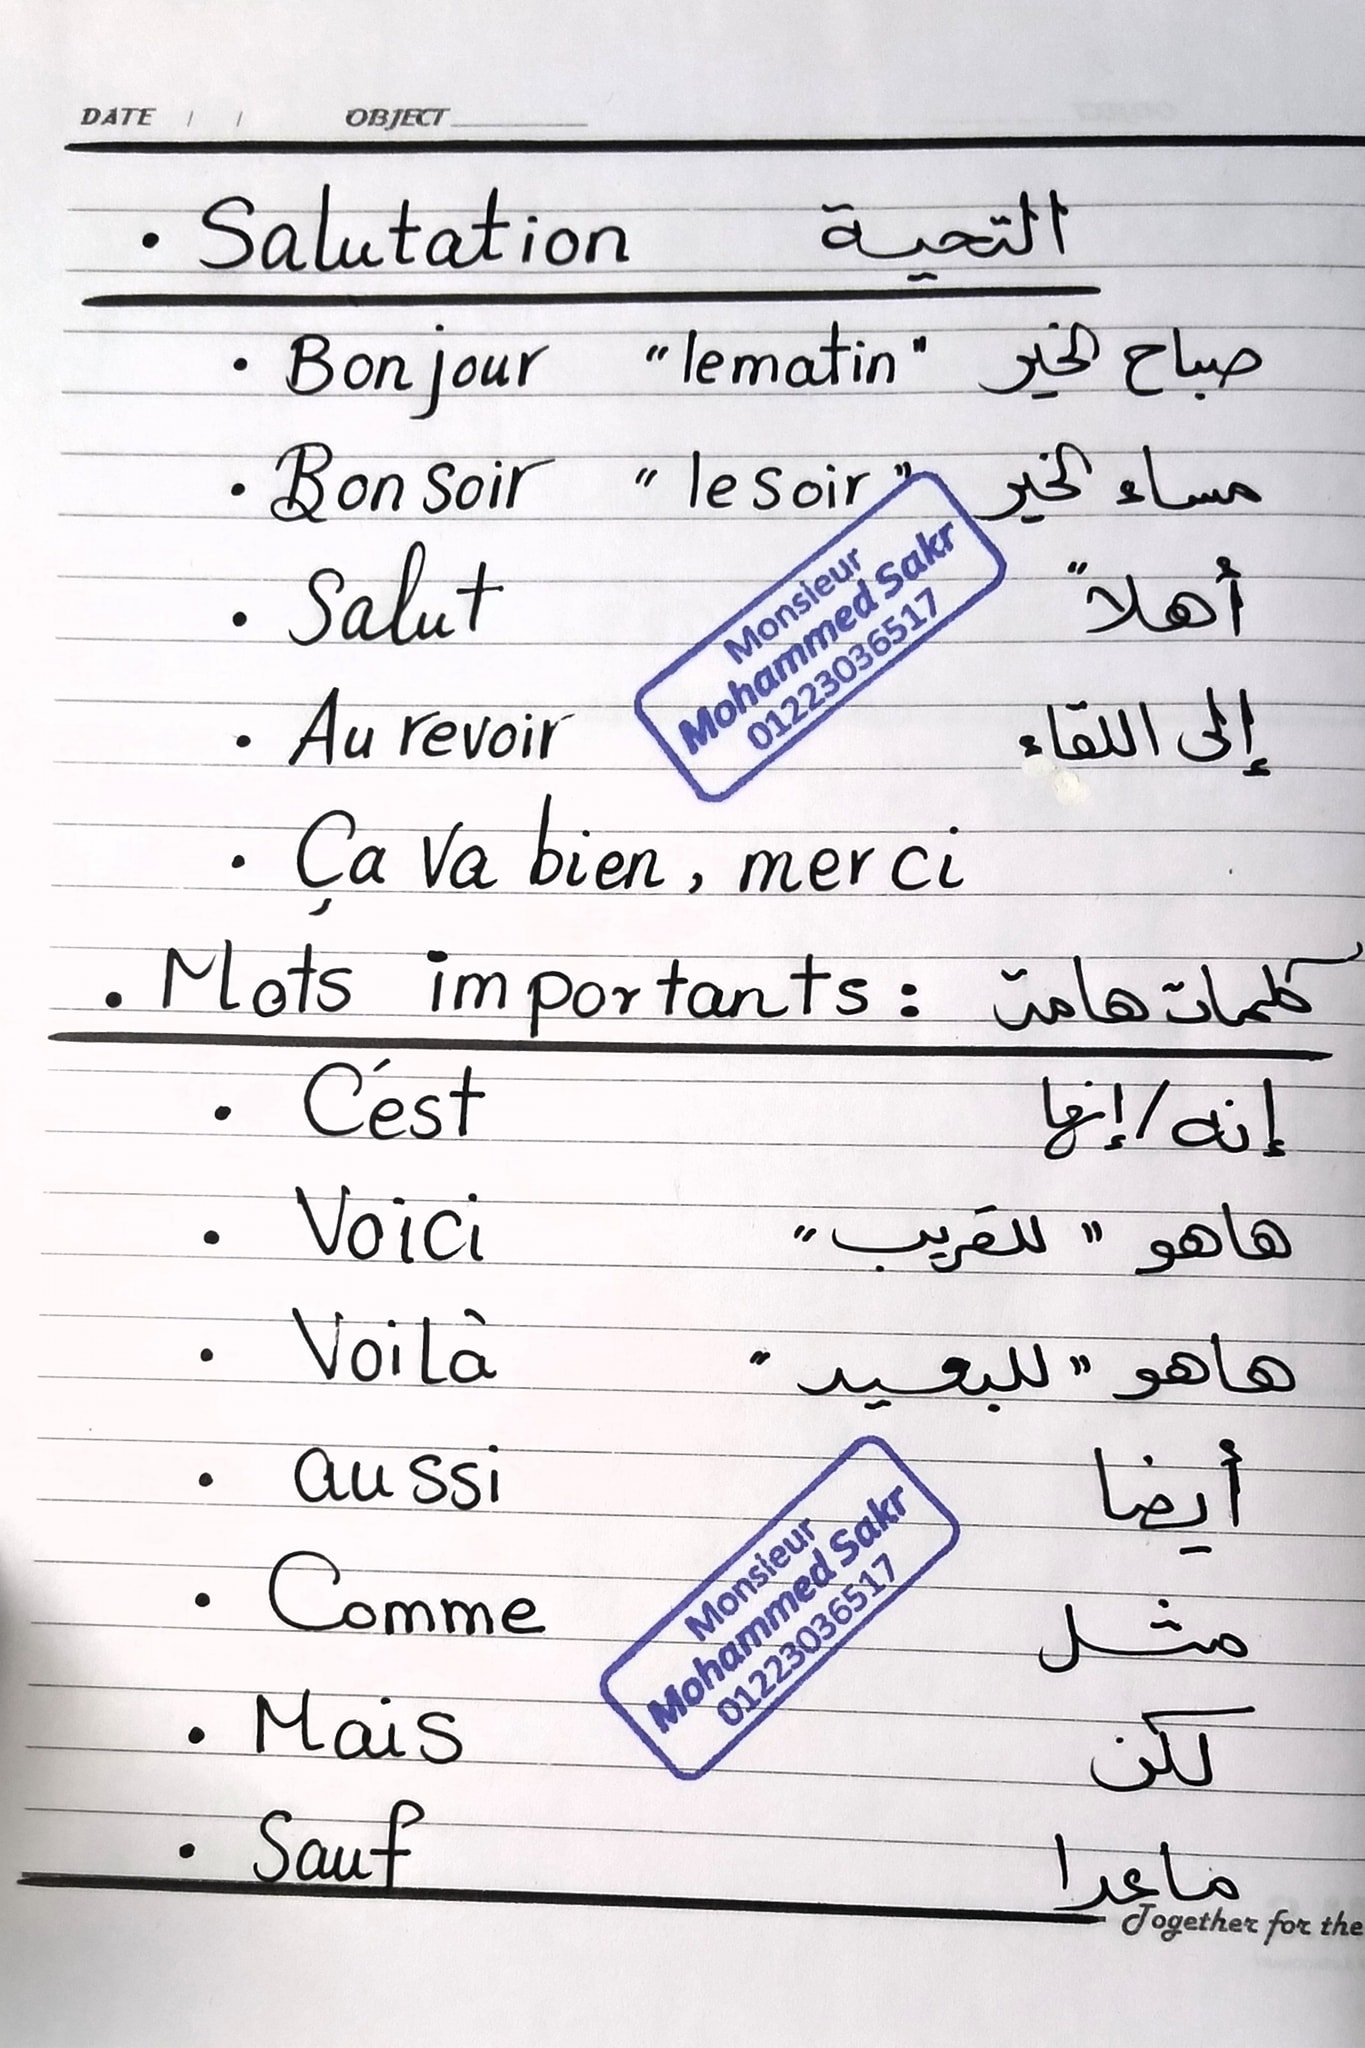 DATE / / OBJECT
• Salutation التحية
• Bonjour "le matin" صباح الخير
• Bonsoir "le soir" مساء الخير
• Salut أهلاً
Monsieur
Mohammed Sakr
01223036517
• Au revoir إلى اللقاء
• Ça va bien, merci
• Mots important​s : كلمات هامة
• C'est إنه/إنها
• Voici هاهو "للقريب"
• Voilà هاهو "للبعيد"
• aussi أيضا
• Comme مثل
Monsieur
Mohammed Sakr
01223036517
• Mais لكن
• Sauf ماعدا
Together for the